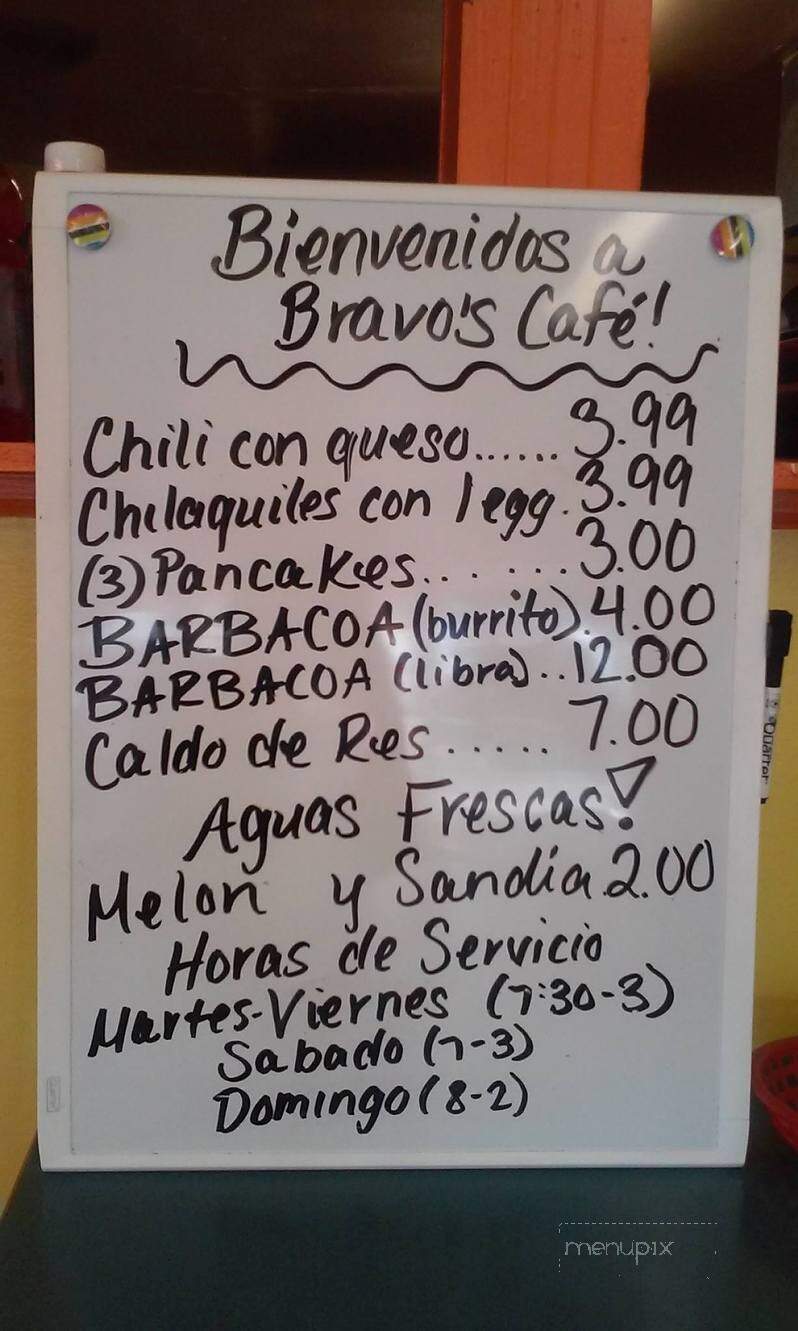 Bienvenidos a
Bravo's Café!
Chili con queso...... 3.99
Chilaquiles con 1 egg. 3.99
(3) Pancakes.. . ... 3.00
BARBACOA (burrito). 4.00
BARBACOA (libra)..12.00
Caldo de Res ..... 7.00
Aguas Frescas!
Melon y Sandía.2.00
Horas de Servicio
Martes-Viernes (7:30-3)
Sabado (7-3)
Domingo (8-2)
Quartet
menupix